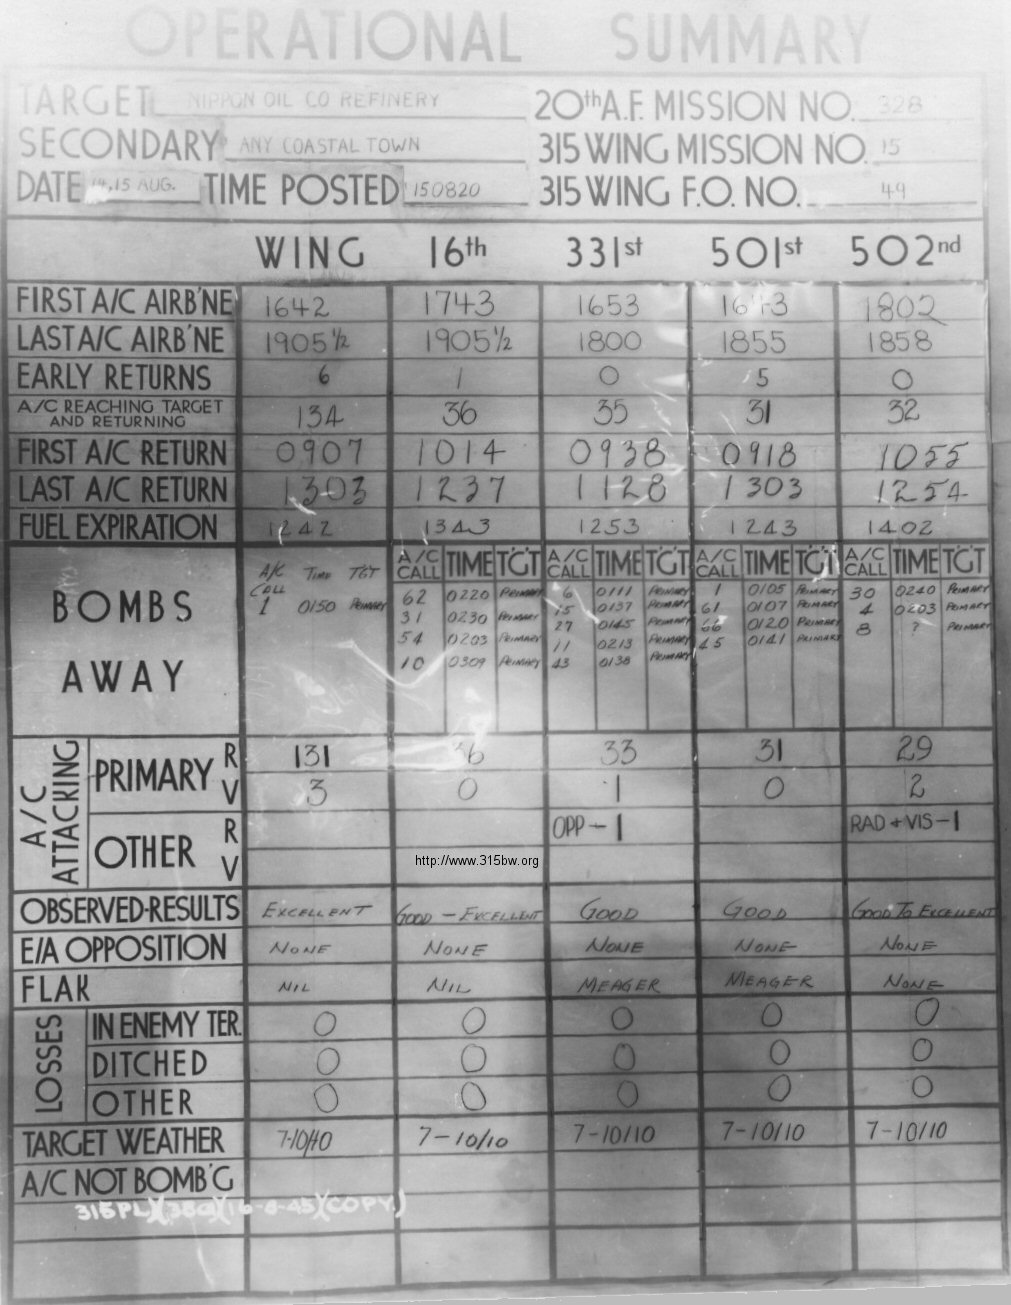 OPERATIONAL SUMMARY
TARGET NIPPON OIL CO REFINERY 20th A.F. MISSION NO. 328
SECONDARY ANY COASTAL TOWN 315 WING MISSION NO. 15
DATE 14,15 AUG. TIME POSTED 150820 315 WING F.O. NO. 49
WING 16th 331st 501st 502nd
FIRST A/C AIRB'NE 1642 1743 1653 1643 1802
LAST A/C AIRB'NE 1905½ 1905½ 1800 1855 1858
EARLY RETURNS 6 1 0 5 0
A/C REACHING TARGET AND RETURNING 134 36 35 31 32
FIRST A/C RETURN 0907 1014 0938 0918 1055
LAST A/C RETURN 1303 1237 1128 1303 1254
FUEL EXPIRATION 1242 1343 1253 1243 1402
BOMBS AWAY
A/C CALL TIME TGT A/C CALL TIME TGT A/C CALL TIME TGT A/C CALL TIME TGT A/C CALL TIME TGT
1 0150 PRIMARY 62 0220 PRIMARY 6 0111 PRIMARY 1 0105 PRIMARY 30 0240 PRIMARY
31 0230 PRIMARY 15 0137 PRIMARY 61 0107 PRIMARY 4 0203 PRIMARY
54 0203 PRIMARY 27 0145 PRIMARY 66 0120 PRIMARY 8 ? PRIMARY
10 0309 PRIMARY 11 0213 PRIMARY 45 0141 PRIMARY
43 0138 PRIMARY
A/C ATTACKING
PRIMARY R 131 36 33 31 29
V 3 0 1 0 2
OTHER R OPP-1 RAD + VIS-1
V
http://www.315bw.org
OBSERVED-RESULTS EXCELLENT GOOD - EXCELLENT GOOD GOOD GOOD TO EXCELLENT
E/A OPPOSITION NONE NONE NONE NONE NONE
FLAK NIL NIL MEAGER MEAGER NONE
LOSSES
IN ENEMY TER. 0 0 0 0 0
DITCHED 0 0 0 0 0
OTHER 0 0 0 0 0
TARGET WEATHER 7-10/10 7-10/10 7-10/10 7-10/10 7-10/10
A/C NOT BOMB'G
315PL)(38G)(16-8-45)(COPY.)